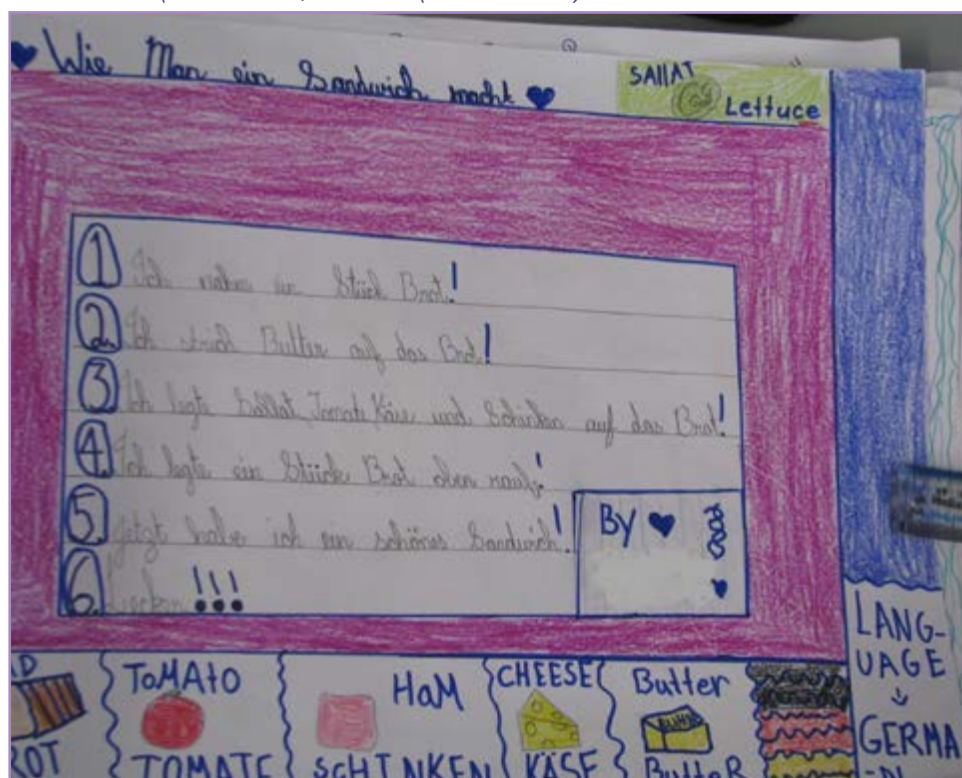 Wie Man ein Sandwich macht
SAllAT
Lettuce
1 Ich nahm ein Stück Brot!
2. Ich strich Butter auf das Brot!
3 Ich legte Sallat, Tomate, Käse und Schinken auf das Brot!
4. Ich legte ein Stück Brot oben rauf!
5. Jetzt habe ich ein schönes Sandwich!
6. Lecker!!!
By
LANG-
UAGE
GERMA
ToMAtO
TOMATE
HaM
SCHINKEN
CHEESE
KÄSE
Butter
ButteR